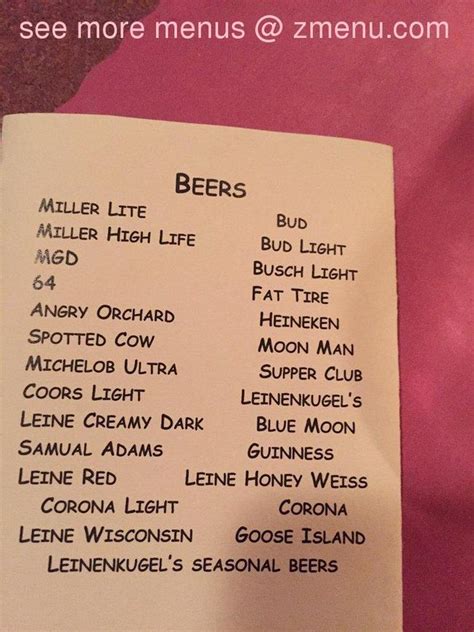 see more menus @ zmenu.com
BEERS
MILLER LITE
MILLER HIGH LIFE
MGD
64
ANGRY ORCHARD
SPOTTED COW
MICHELOB ULTRA
COORS LIGHT
LEINE CREAMY DARK
SAMUAL ADAMS
LEINE RED
CORONA LIGHT
LEINE WISCONSIN
BUD
BUD LIGHT
BUSCH LIGHT
FAT TIRE
HEINEKEN
MOON MAN
SUPPER CLUB
LEINENKUGEL'S
BLUE MOON
GUINNESS
LEINE HONEY WEISS
CORONA
GOOSE ISLAND
LEINENKUGEL'S SEASONAL BEERS